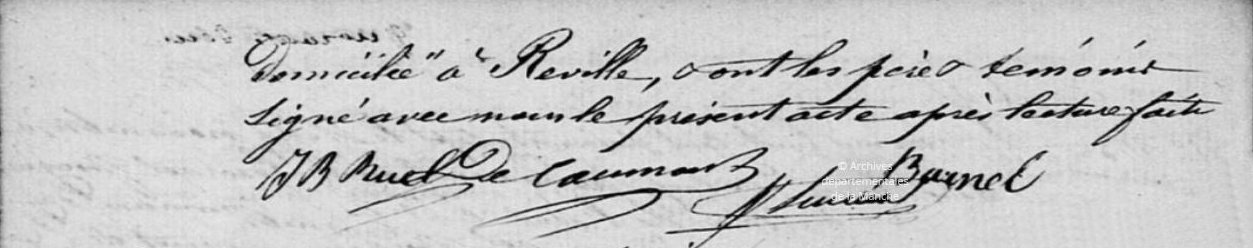 Domiciliée à Réville, & ont les père & témoins
signé avec nous le présent acte après lecture faite
JB Ruel De Caumont Burnel
© Archives
départementales
de la Manche